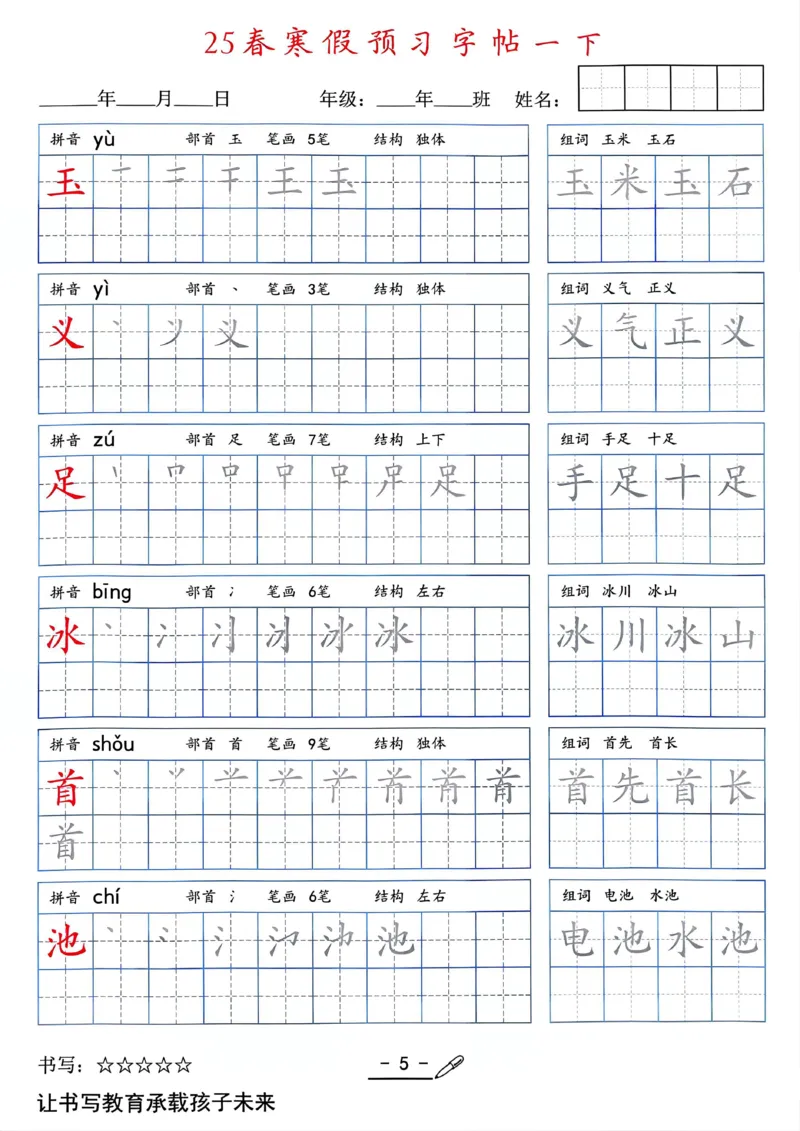 25春寒假预习字帖一下
____年____月____日 年级：____年____班 姓名：
拼音 yù 部首 玉 笔画 5笔 结构 独体 组词 玉米 玉石
玉 王 玉 玉米玉石
拼音 yì 部首 丶 笔画 3笔 结构 独体 组词 义气 正义
义 义 义气正义
拼音 zú 部首 足 笔画 7笔 结构 上下 组词 手足 十足
足 足 手足十足
拼音 bīng 部首 冫 笔画 6笔 结构 左右 组词 冰川 冰山
冰 冰 冰川冰山
拼音 shǒu 部首 首 笔画 9笔 结构 独体 组词 首先 首长
首 首先首长
首
拼音 chí 部首 氵 笔画 6笔 结构 左右 组词 电池 水池
池 池 电池水池
书写：☆☆☆☆☆ - 5 -
让书写教育承载孩子未来